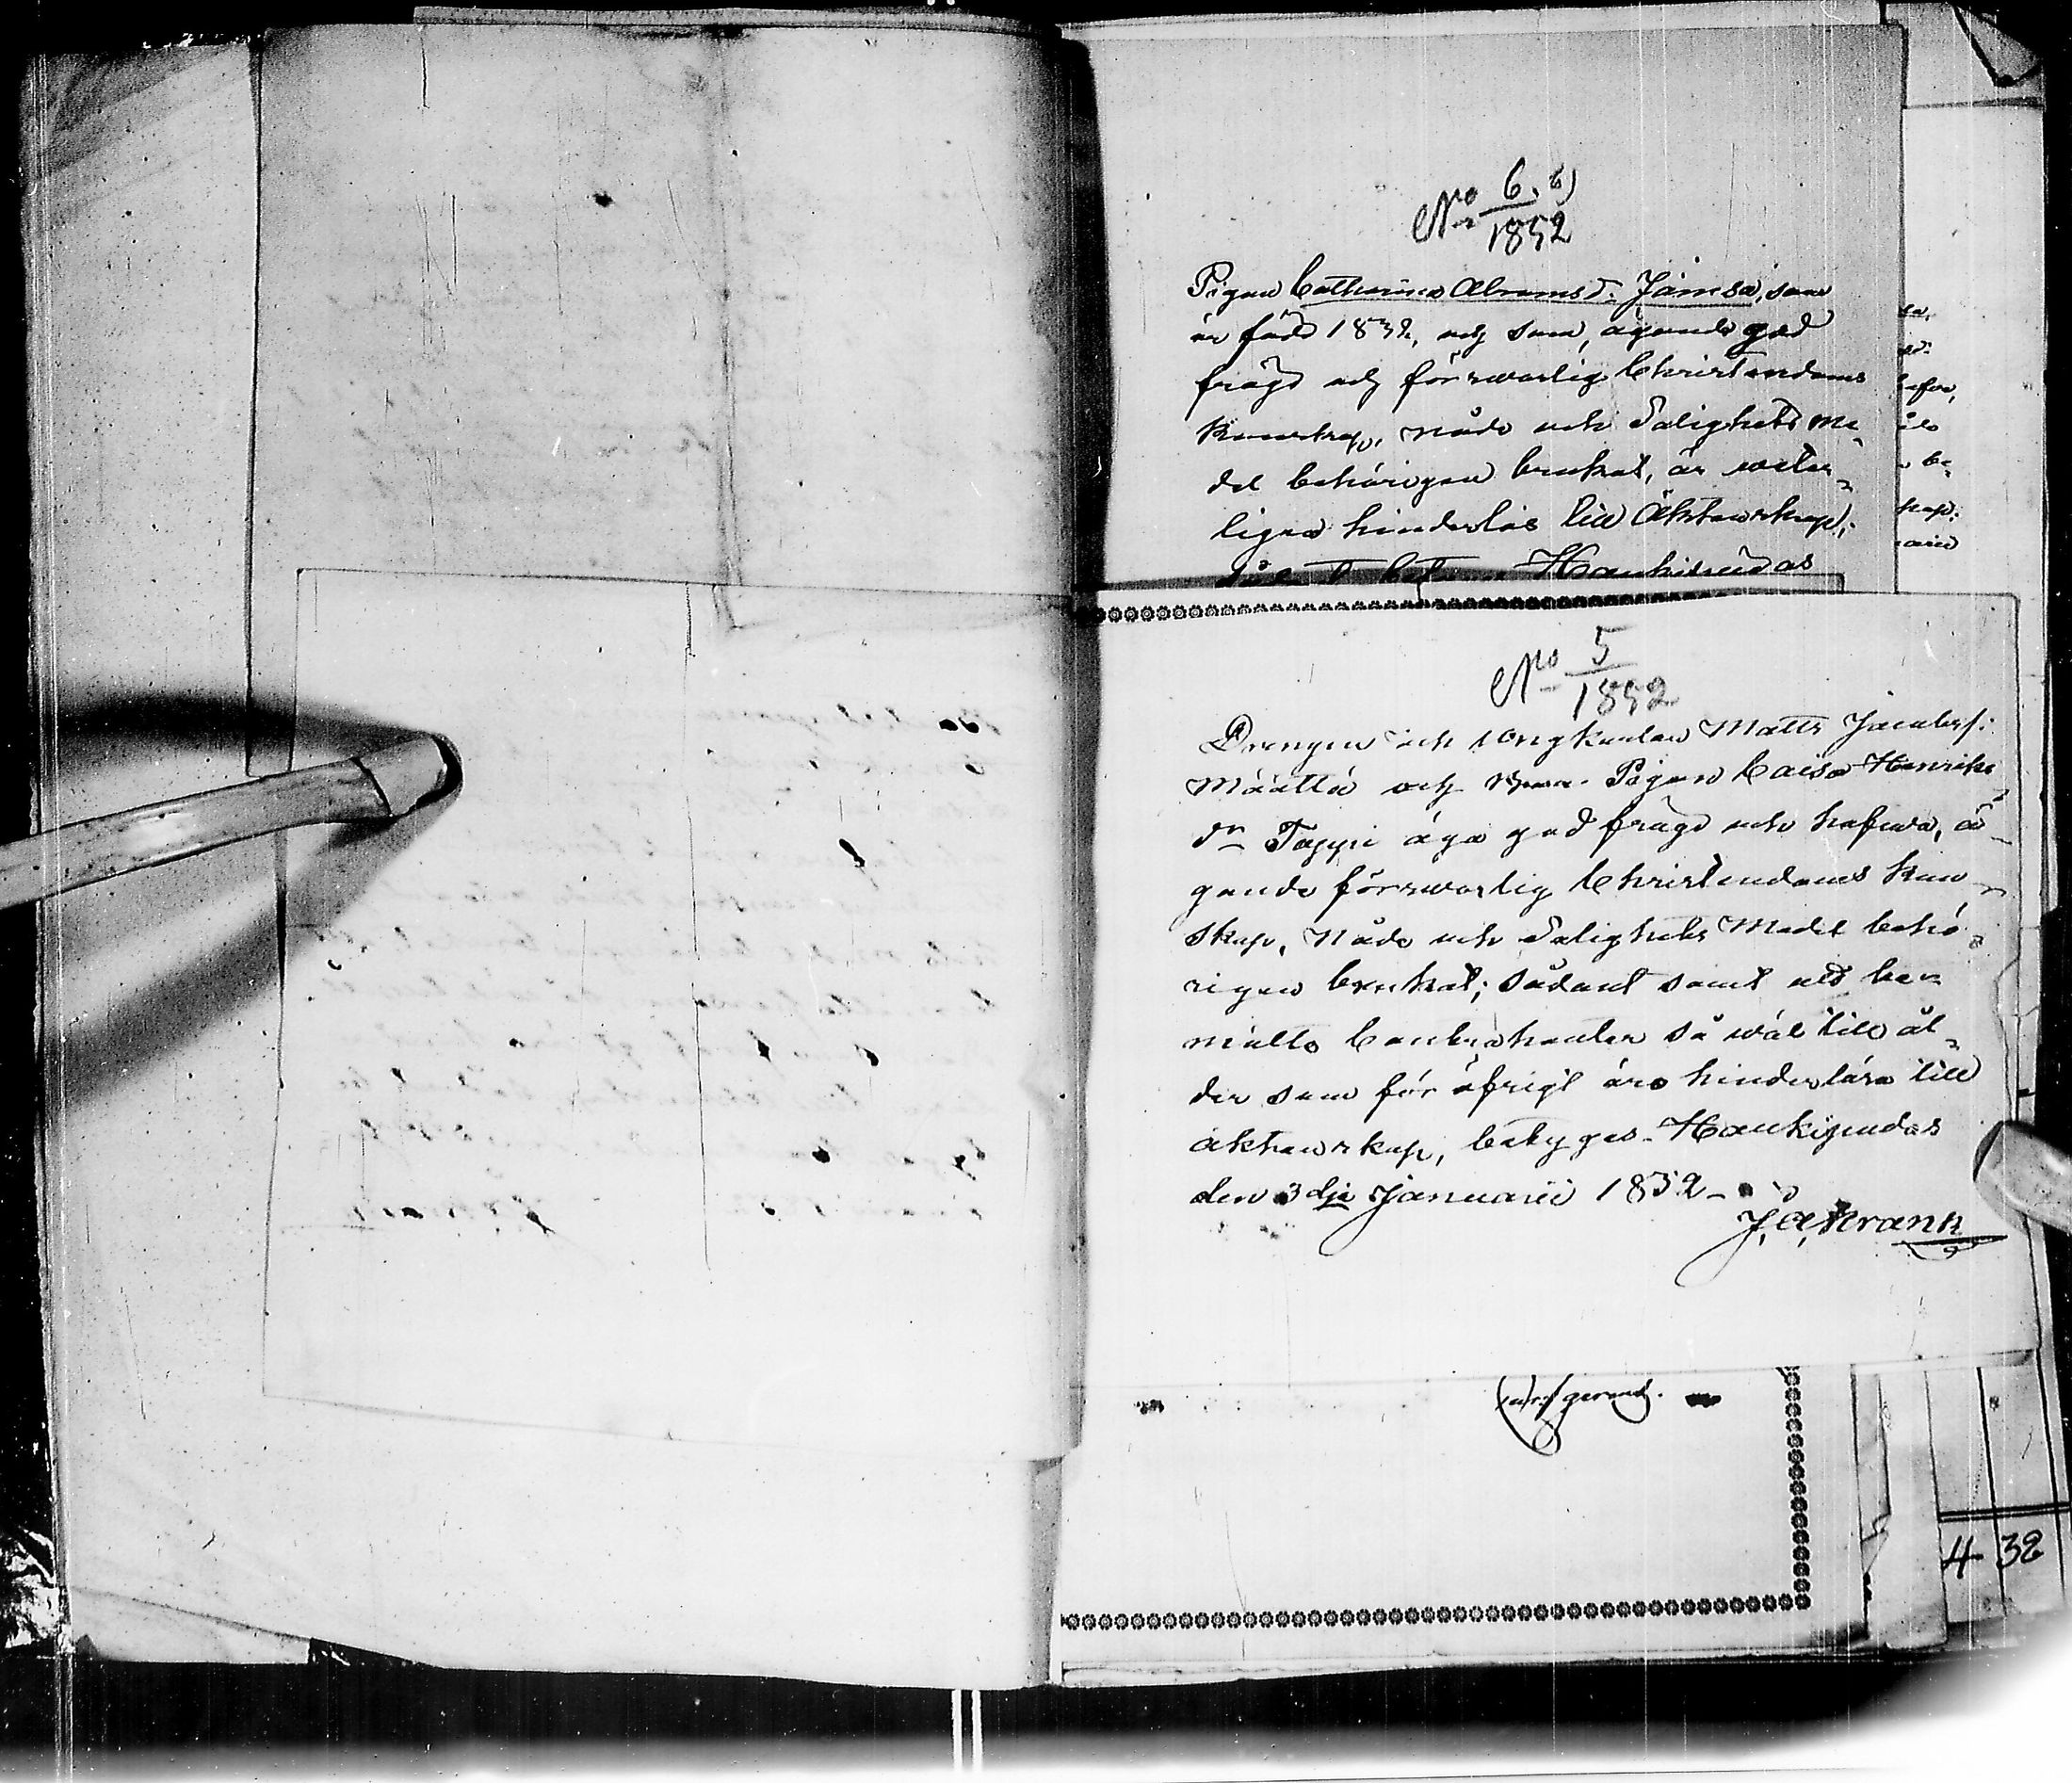 No 6. b)
1852
Pigan Catharina Abramsd: Jämsä, som
är född 1832, och som, ägande god
frägd och försvarlig Christendoms
Kunskap, nåde och Salighets me-
del behörigen brukat, är veter-
ligen hinderlös till Äktenskap;
Haukipudas
No 5
1852
Drengen och ungkarlen Matts Jacobss:
Määttä och Pigan Caisa Henriks
dr Tappi äga god frägd och hafwa, ä-
gande försvarlig Christendoms kun-
skap, Nåde och Salighets Medel behö-
rigen brukat; sådant samt att be-
mälte Contrahenter så wäl till ål-
der som för öfrigt äro hinderlösa till
äktenskap, betygas. Haukipudas
den 3dje Januarii 1852
J. A. Krank
4 32